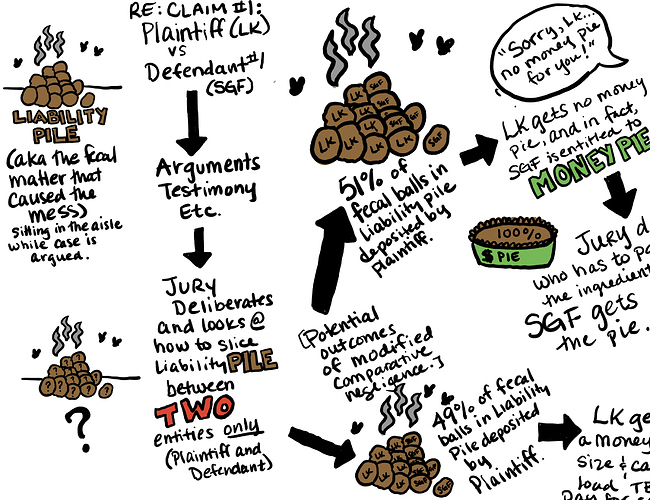 RE: CLAIM #1:
Plaintiff (LK)
VS
Defendant #1
(SGF)
LIABILITY
PILE
(aka the fecal
matter that
caused the
mess)
sitting in the aisle
while case is
argued.
Arguments
Testimony
Etc.
JURY
Deliberates
and looks @
how to slice
Liability PILE
between
TWO
entities only
(Plaintiff and
Defendant)
?
51% of
fecal balls in
Liability Pile
deposited by
Plaintiff.
"Sorry, LK...
no money pie
for you!"
LK gets no money
pie, and in fact,
SGF is entitled to
MONEY PIE
100%
$ PIE
JURY d
who has to pa
the ingredient
SGF gets
the pie.
[Potential
outcomes
of modified
comparative
negligence.]
49% of fecal
balls in Liability
Pile deposited
by
Plaintiff.
LK ge
a money
size & ca
load